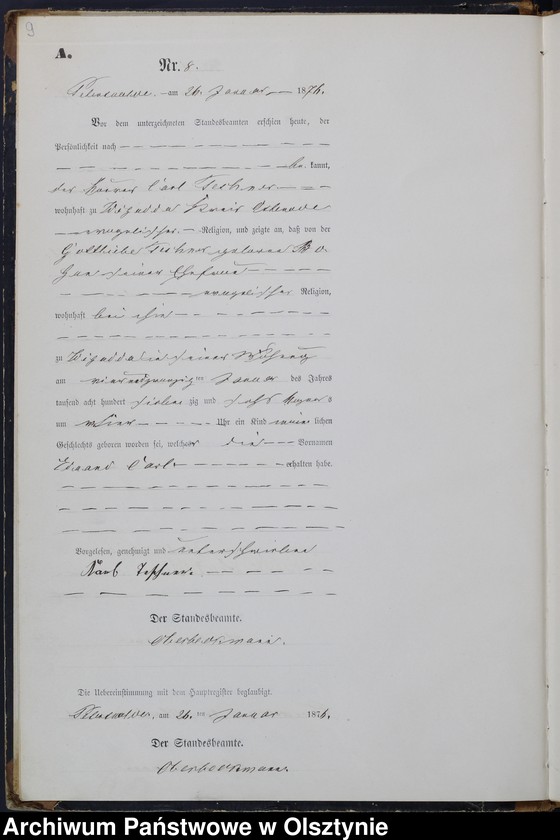 9
A.
Nr. 8.
am 26. Januar 1876.
Vor dem unterzeichneten Standesbeamten erschien heute, der
Persönlichkeit nach
be kannt,
der Maurer Carl Teschner
wohnhaft zu Kreis Osterode
evangelischer Religion, und zeigte an, daß von der
Gottliebe Teschner geborene
seiner Ehefrau
evangelischer Religion,
wohnhaft bei ihm
zu in seiner Wohnung
am vierundzwanzig ten Januar des Jahres
tausend acht hundert sieben zig und sechs
um Uhr ein Kind männ lichen
Geschlechts geboren worden sei, welches die Vornamen
Eduard Carl erhalten habe.
Vorgelesen, genehmigt und unterschrieben
Karl Teschner.
Der Standesbeamte.
Oberbeckmann.
Die Uebereinstimmung mit dem Hauptregister beglaubigt.
am 26. ten Januar 1876.
Der Standesbeamte.
Oberbeckmann.
Archiwum Państwowe w Olsztynie